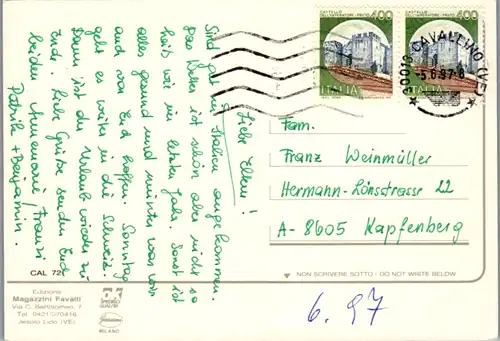 Liebe Eltern!
Sind gut in Italien angekommen.
Das Wetter ist schön aber nicht so
heiß wie im letzten Jahr. Sonst ist
alles gesund und munter was wir
auch von Euch hoffen. Sonntag
geht es weiter in die Schweiz.
Dann ist der Urlaub wieder zu
Ende. Liebe Grüße senden Euch
beiden Annemarie, Franzi
Patrik + Benjamin.
CASTELLO
DELL'IMPERATORE · PRATO
400
ITALIA
CASTELLO
DELL'IMPERATORE · PRATO
400
ITALIA
30013 CAVALLINO (VE)
-5.6.97-8
Fam.
Franz Weinmüller
Hermann-Lönsstrasse 22
A-8605 Kapfenberg
CAL 72
NON SCRIVERE SOTTO - DO NOT WRITE BELOW
Edizione
Magazzini Favatti
Via C. Battisti
Tel. 0421/970416
Jesolo Lido (VE)
MILANO
6.97